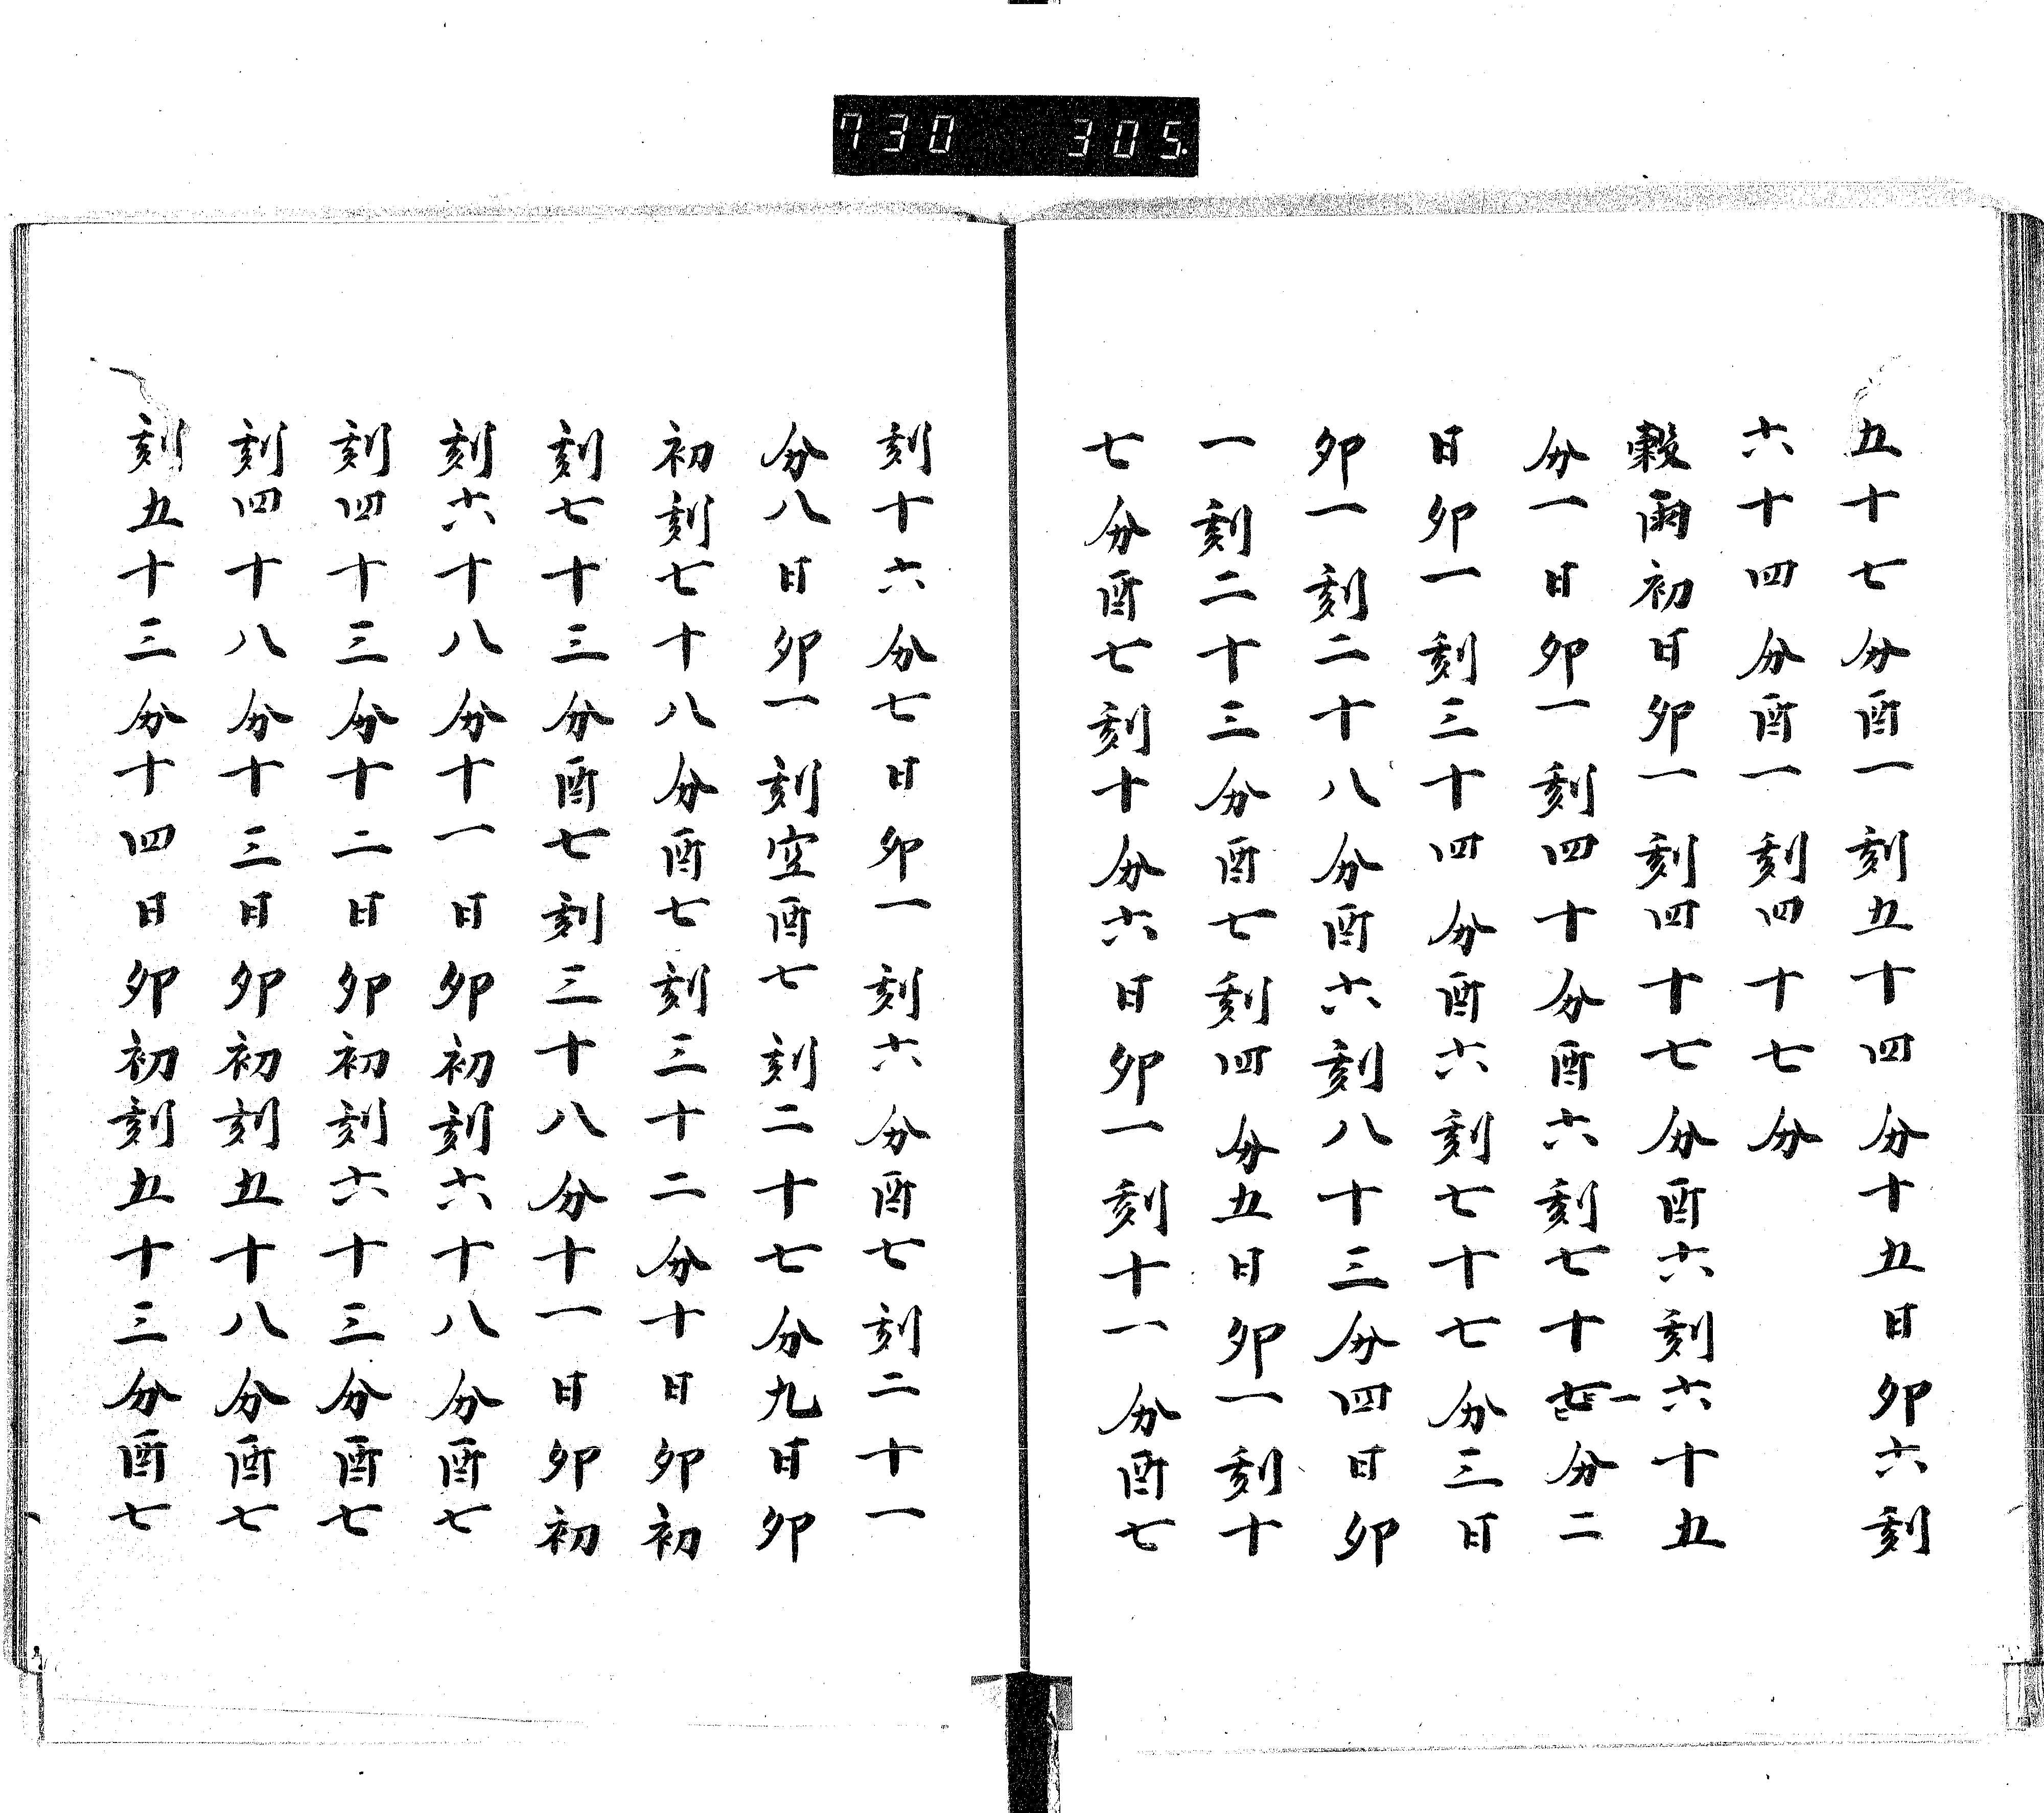 730 305
五十七分酉一刻五十四分十五日卯六刻
六十四分酉一刻四十七分
穀雨初日卯一刻四十七分酉六刻六十五
分一日卯一刻四十分酉六刻七十一分二
日卯一刻三十四分酉六刻七十七分三日
卯一刻二十八分酉六刻八十三分四日卯
一刻二十三分酉七刻四分五日卯一刻十
七分酉七刻十分六日卯一刻十一分酉七
刻十六分七日卯一刻六分酉七刻二十一
分八日卯一刻空酉七刻二十七分九日卯
初刻七十八分酉七刻三十二分十日卯初
刻七十三分酉七刻三十八分十一日卯初
刻六十八分十一日卯初刻六十八分酉七
刻四十三分十二日卯初刻六十三分酉七
刻四十八分十三日卯初刻五十八分酉七
刻五十三分十四日卯初刻五十三分酉七